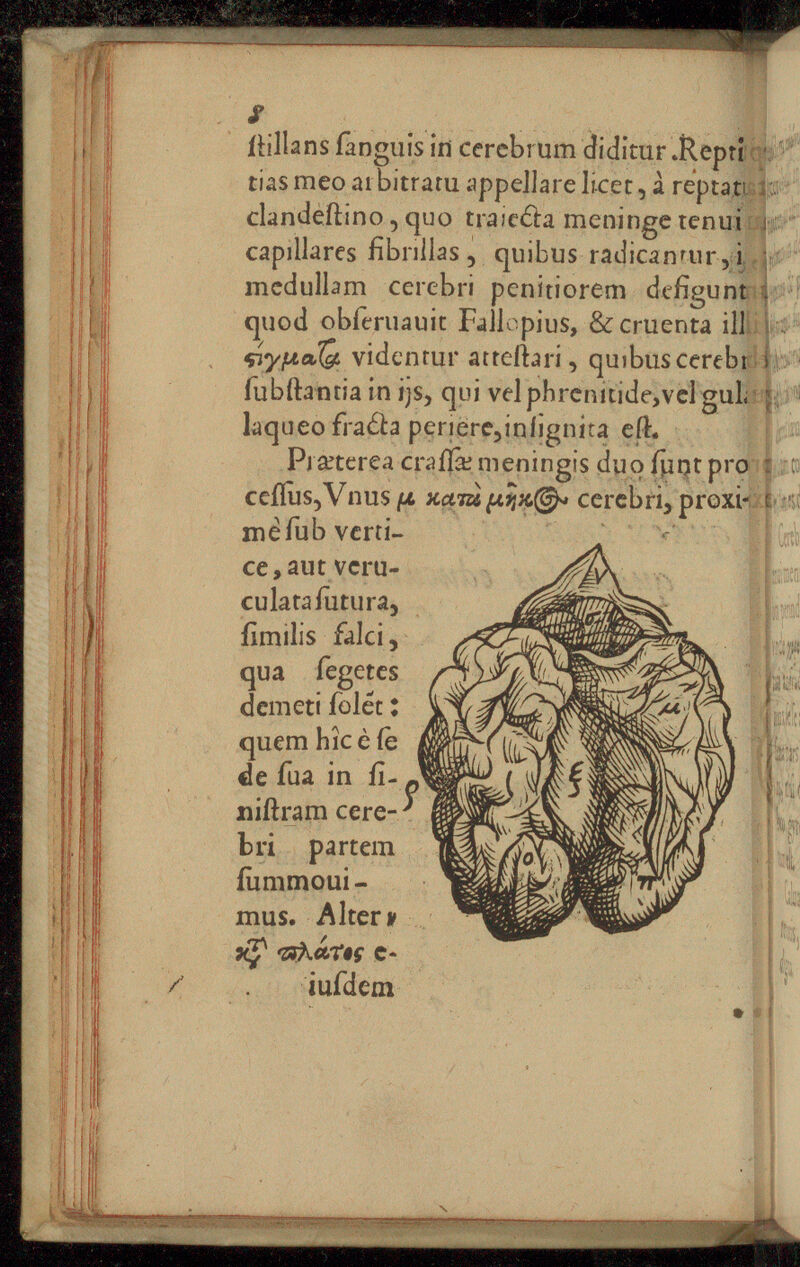 8
ſtillans ſanguis in cerebrum diditur. 
tias meo arbitratu appellare licet, à
clandeſtino, quo traiecta meninge tenui
capillares fibrillas, quibus radicantur,
medullam cerebri penitiorem
quod obſeruauit Fallopius, & cruenta
ςίγματα videntur atteſtari, quibus
ſubſtantia in ijs, qui vel phrenitide, vel
laqueo fracta periêre, inſignita eſt.
Præterea craſſæ meningis duo ſunt pro
ceſſus, Vnus μ κατὰ μῆκος cerebri, proxi-
mè ſub verti-
ce, aut veru-
culata ſutura,
ſimilis falci,
qua ſegetes
demeti ſolẽt:
quem hîc è ſe
de ſua in ſi-
niſtram cere-
bri partem
ſummoui-
mus. Alter ν
κτ̀ πλάτος e-
iuſdem
ξ
ο
π